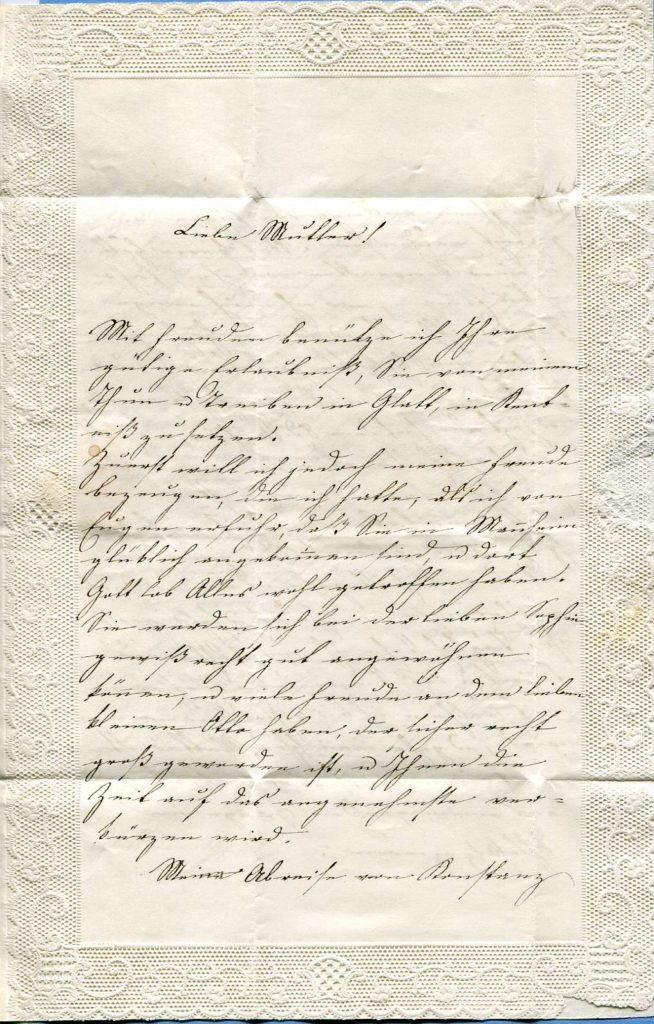 Liebe Mutter!
Mit Freuden benütze ich Ihre
gütige Erlaubniß, Sie von meinem
Thun u Treiben in Glatt, in Kent-
niß zu setzen.
Zuerst will ich jedoch meine Freude
bezeugen, die ich hatte, als ich von
Eugen erfuhr, daß Sie in Manheim
glücklich angekommen sind, u dort
Gott lob Alles wohl getroffen haben.
Sie werden sich bei der lieben Sophie
gewiß recht gut angewöhnen
könen, u viele Freude an dem lieben
kleinen Otto haben, der sicher recht
groß geworden ist, u Ihnen die
Zeit auf das angenehmste ver-
kürzen wird.
Meine Abreise von Konstanz